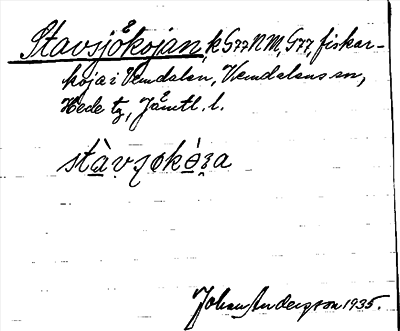 Stavsjökojan, k G77 NM, G77, fiskar-
koja i Vemdalen, Vemdalens sn,
Hede tg, Jämtl. l.
stàvʂøkòʒa
Johan Anderson 1935.